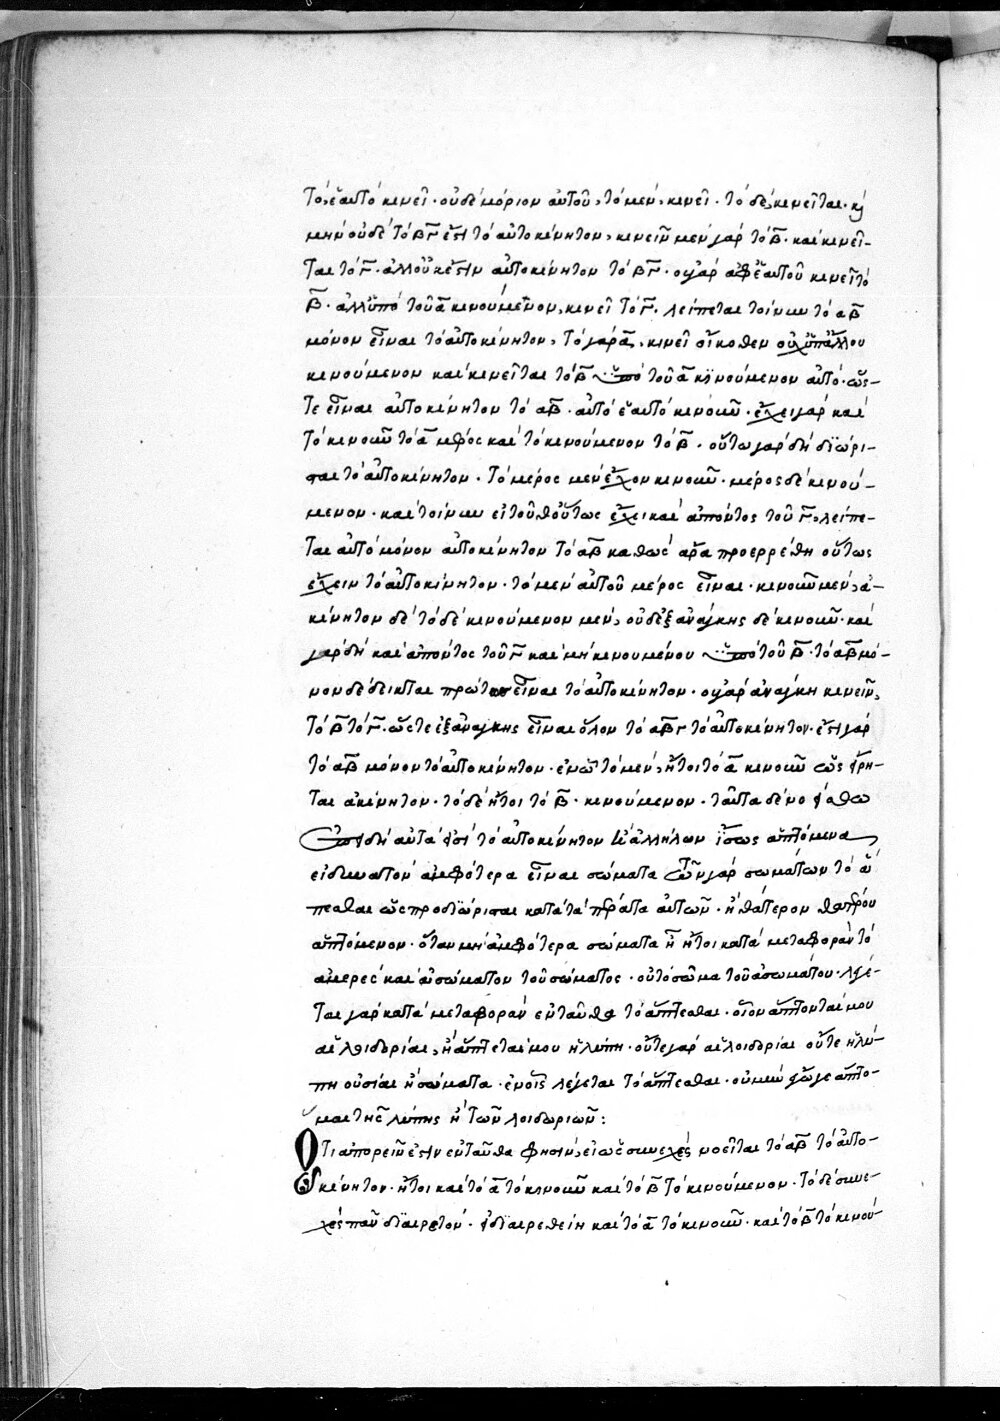 τὸ, ἑαυτὸ κινεῖ · οὐδὲ μόριον αὐτοῦ, τὸ μὲν, κινεῖ · τὸ δὲ, κινεῖται · κ(αὶ)
μὴν οὐδὲ τὸ ΒΓ ἔστι τὸ αὐτοκίνητον, κινεῖν μὲν γὰρ τὸ Β · καὶ κινεῖ-
ται τὸ Γ · ἀλλ' οὐκ ἔστιν αὐτοκίνητον τὸ ΒΓ · οὐ γὰρ ἀφ' ἑαυτοῦ κινεῖ τὸ
Β · ἀλλ' ὑπὸ τοῦ α κινούμενον, κινεῖ τὸ Γ · λείπεται τοίνυν τὸ αΒ
μόνον εἶναι τὸ αὐτοκίνητον, τὸ γὰρ α, κινεῖ οἴκοθεν οὐχ ὑπ' ἄλλου
κινούμενον καὶ κινεῖται τὸ Β ὑπὸ τοῦ α κινούμενον αὐτό · ὥσ-
τε εἶναι αὐτοκίνητον τὸ αΒ · αὐτὸ ἑαυτὸ κινοῦν · ἔχει γὰρ καὶ
τὸ κινοῦν τὸ α μέρος καὶ τὸ κινούμενον τὸ Β · οὕτω γὰρ δὴ διώρι-
σται τὸ αὐτοκίνητον · τὸ μέρος μὲν ἔχον κινοῦν · μέρος δὲ κινού-
μενον · καὶ τοίνυν εἰ τοῦθ' οὕτως ἔχει καὶ ἀπόντος τοῦ Γ, λείπε-
ται αὐτὸ μόνον αὐτοκίνητον τὸ αΒ καθὼς ἄρα προερρέθη οὕτως
ἔχειν τὸ αὐτοκίνητον · τὸ μὲν αὐτοῦ μέρος εἶναι · κινοῦν μὲν, ἀ-
κίνητον δὲ τὸ δὲ κινούμενον μὲν, οὐδ' ἐξ ἀνάγκης δὲ κινοῦν · καὶ
γὰρ δὴ καὶ ἀπόντος τοῦ Γ καὶ μὴ κινουμένου ὑπὸ τοῦ Β · τὸ αΒ μό-
νον δέδεικται πρώτως εἶναι τὸ αὐτοκίνητον · οὐ γὰρ ἀνάγκη κινεῖν,
τὸ Β τὸ Γ · ὥστε ἐξ ἀνάγκης εἶναι ὅλον τὸ αΒΓ τὸ αὐτοκίνητον · ἔστι γὰρ
τὸ αΒ μόνον τὸ αὐτοκίνητον · ἐν ᾧ τὸ μὲν, ἤτοι τὸ α κινοῦν ὡς εἴρη-
ται ἀκίνητον · τὸ δὲ ἤτοι τὸ Β · κινούμενον · ταῦτα δὲ
δὴ αὐτὰ τὸ αὐτοκίνητον ἀλλήλων ἴσως ἁπτόμενα
εἰ δυνατὸν ἀμφότερα εἶναι σώματα ὧν γὰρ σωμάτων τὸ ἅ
πτεσθαι ὡς προσδιώρισται κατὰ τὰ πέρατα αὐτῶν · ἢ θάτερον θατέρου
ἁπτόμενον · ὅταν μὴ ἀμφότερα σώματα ᾖ ἤτοι κατὰ μεταφορὰν τὸ
ἀμερὲς καὶ ἀσώματον τοῦ σώματος · οὐ τὸ σῶμα τοῦ ἀσωμάτου · λέγε-
ται γὰρ κατὰ μεταφορὰν ἐνταῦθα τὸ ἅπτεσθαι · οἷον ἅπτονταί μου
αἱ λοιδορίαι, ἢ ἅπτεταί μου ἡ λύπη · οὔτε γὰρ αἱ λοιδορίαι οὔτε ἡ λύ-
πη οὐσίαι ἢ σώματα · ἐν οἷς λέγεται τὸ ἅπτεσθαι · οὐ μὴν ἔγωγε ἅπτο-
μαι τῆς λύπης ἢ τῶν λοιδοριῶν :
Ὅτι ἀπορεῖν ἔστιν ἐνταῦθα φησὶν, εἰ ὡς συνεχὲς νοεῖται τὸ αΒ τὸ αὐτο-
κίνητον · ἤτοι καὶ τὸ α τὸ κινοῦν καὶ τὸ Β τὸ κινούμενον · τὸ δὲ συνε-
χὲς πᾶν διαιρετόν · εἰ διαιρεθείη καὶ τὸ α τὸ κινοῦν · καὶ τὸ Β τὸ κινού-